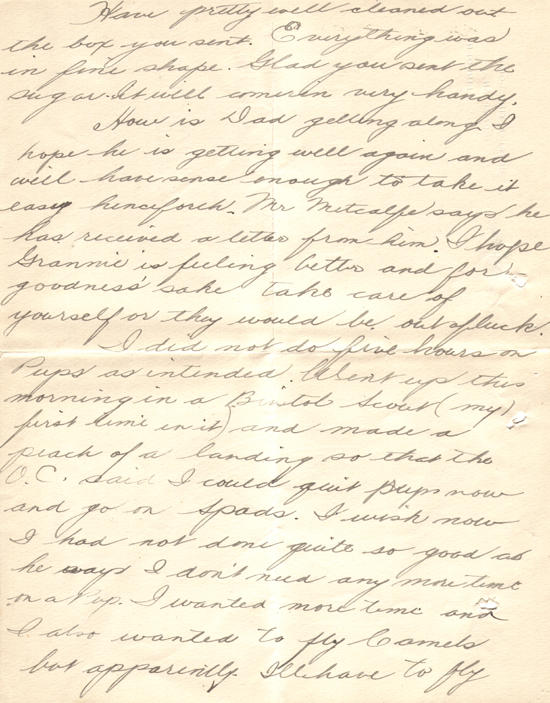 Have pretty well cleaned out
the box you sent. Everything was
in fine shape. Glad you sent the
sugar. It will come in very handy.
How is Dad getting along. I
hope he is getting well again and
will have sense enough to take it
easy henceforth. Mr Metcalfe says he
has received a letter from him. I hope
Grannie is feeling better and for
goodness sake take care of
yourself or they would be out of luck.
I did not do five hours on
Pups as intended. Went up this
morning in a Bristol Scout (my
first time in it) and made a
peach of a landing so that the
O.C. said I could quit pups now
and go on Spads. I wish now
I had not done quite so good as
he says I don't need any more time
on a Pup. I wanted more time and
I also wanted to fly Camels
but apparently I'll have to fly